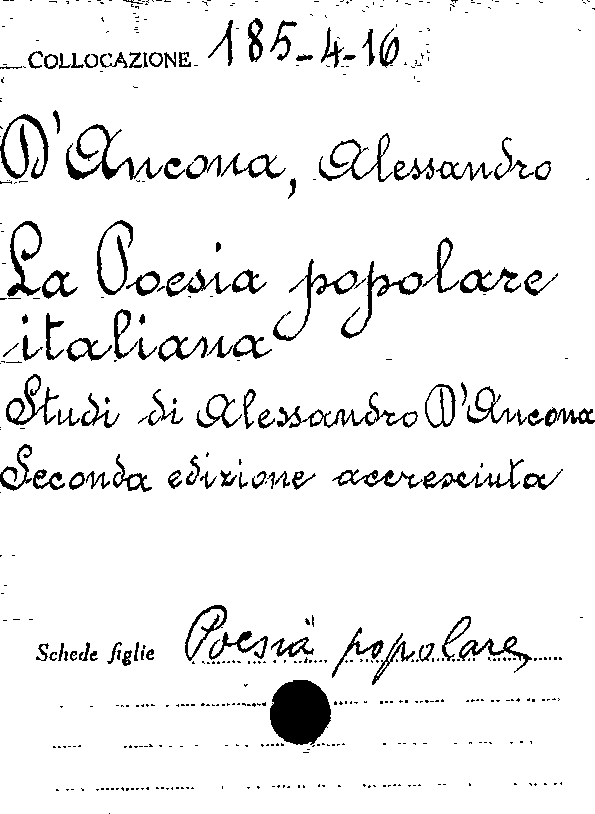 COLLOCAZIONE 185-4-16
D'Ancona, Alessandro
La Poesia popolare
italiana
Studi di Alessandro D'Ancona
Seconda edizione accresciuta
Schede figlie Poesia popolare,